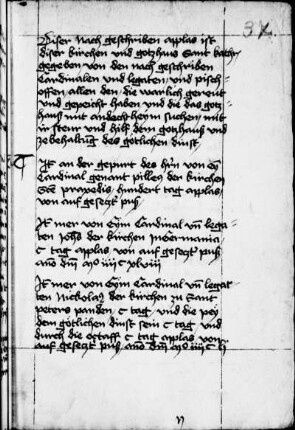 37
Diser nach geschriben applas ist
diser kirchen und gotzhaus Sant kath
gegeben von den nach geschriben
Cardinalen und legaten und pisch-
offen allen den die warlich gereut
und gepeicht haben und die das gotz-
haus mit andechtikeyt suchen mit
ir steur und hilf dem gotzhaus und
zebehaltug des gotlichen dinst
It an der gepurt des hrn von eym
Cardinal genant pilleus der kirchen
Sce praxedis hundert tag applas
von auf gesetzt pus
It mer von eym Cardinal un lega-
ten johs der kirchen in Germania
C tag applas von auf gesetzt pus
ano dm mo iiii c xlviii
It mer von eym Cardinal un legat-
ten Nickolas der kirchen zu Sant
peters panden C tag und die pey
dem gotlichen dinst sein C tag und
durch die octaff C tag applas von
auf gesetzt pus ano dm mo iiii c li